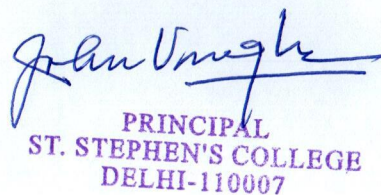 John Varghese
PRINCIPAL
ST. STEPHEN'S COLLEGE
DELHI-110007